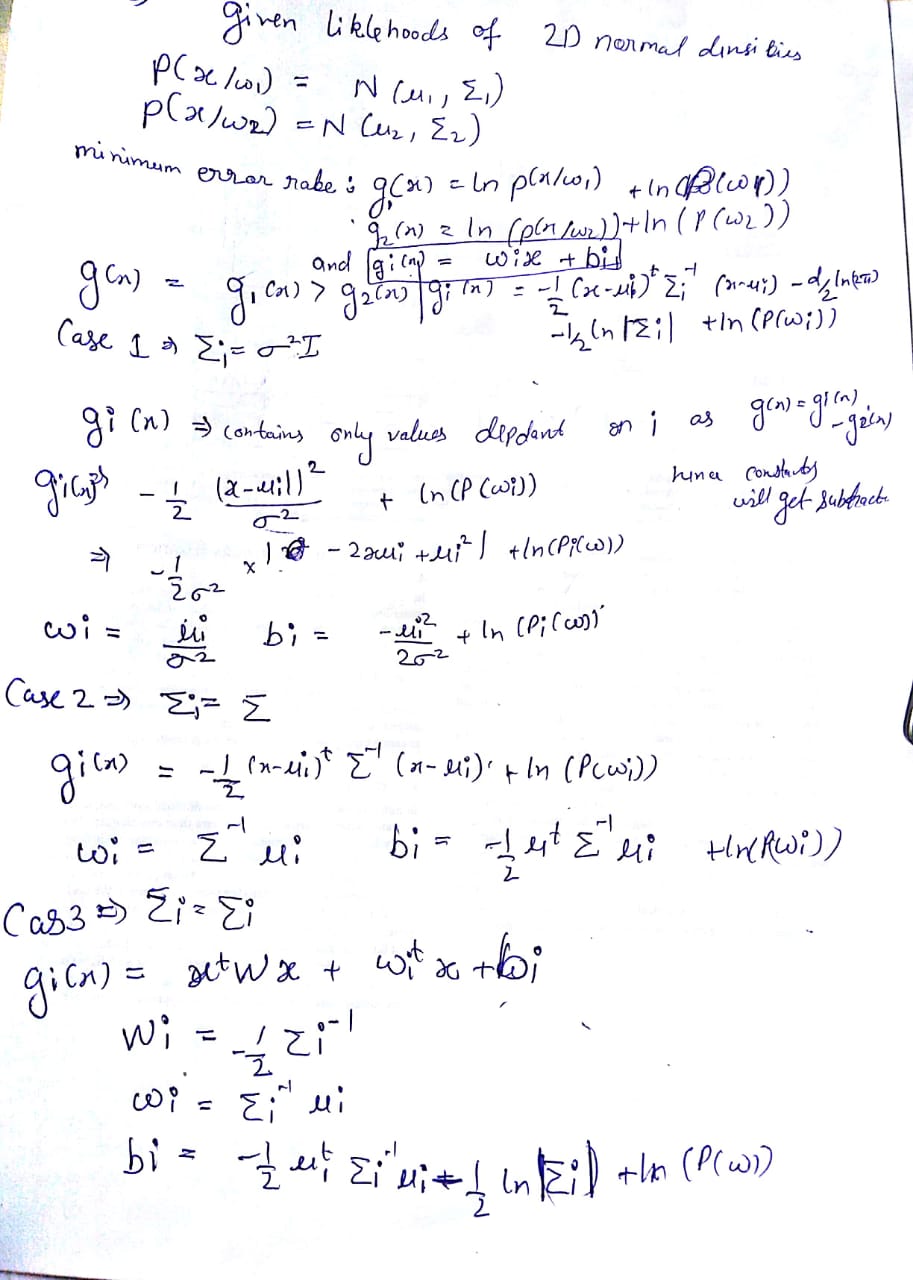 given liklehoods of 2D normal dinsities
P(x/ω1) = N(μ1, Σ1)
p(x/ω2) = N(μ2, Σ2)
minimum error rate : g1(x) = ln p(x/ω1) + ln (P(ω1))
g2(x) = ln (p(x/ω2)) + ln (P(ω2))
and gi(x) = wix + bi
g(x) = g1(x) > g2(x) | gi(x) = -1/2 (x-μi)^t Σi^-1 (x-μi) - d/2 ln(2π)
-1/2 ln |Σi| + ln (P(ωi))
Case 1 ⇒ Σi = σ²I
gi(x) ⇒ contains only values depdant on i as g(x) = g1(x) - g2(x)
hence constants will get subtract
gi(x) ⇒ -1/2 (x-μi||²/σ² + ln(P(ωi))
⇒ -1/2σ² x | - 2xμi + μi² | + ln(Pi(ω))
wi = μi/σ² bi = -μi²/2σ² + ln (Pi(ω))
Case 2 ⇒ Σi = Σ
gi(x) = -1/2 (x-μi)^t Σ^-1 (x-μi) + ln (P(ωi))
wi = Σ^-1 μi bi = -1/2 μ^t Σ^-1 μi + ln(P(ωi))
Cas3 ⇒ Σi = Σi
gi(x) = x^t W x + wi^t x + bi
Wi = -1/2 Σi^-1
wi = Σi^-1 μi
bi = -1/2 μi^t Σi^-1 μi - 1/2 ln|Σi| + ln (P(ω))